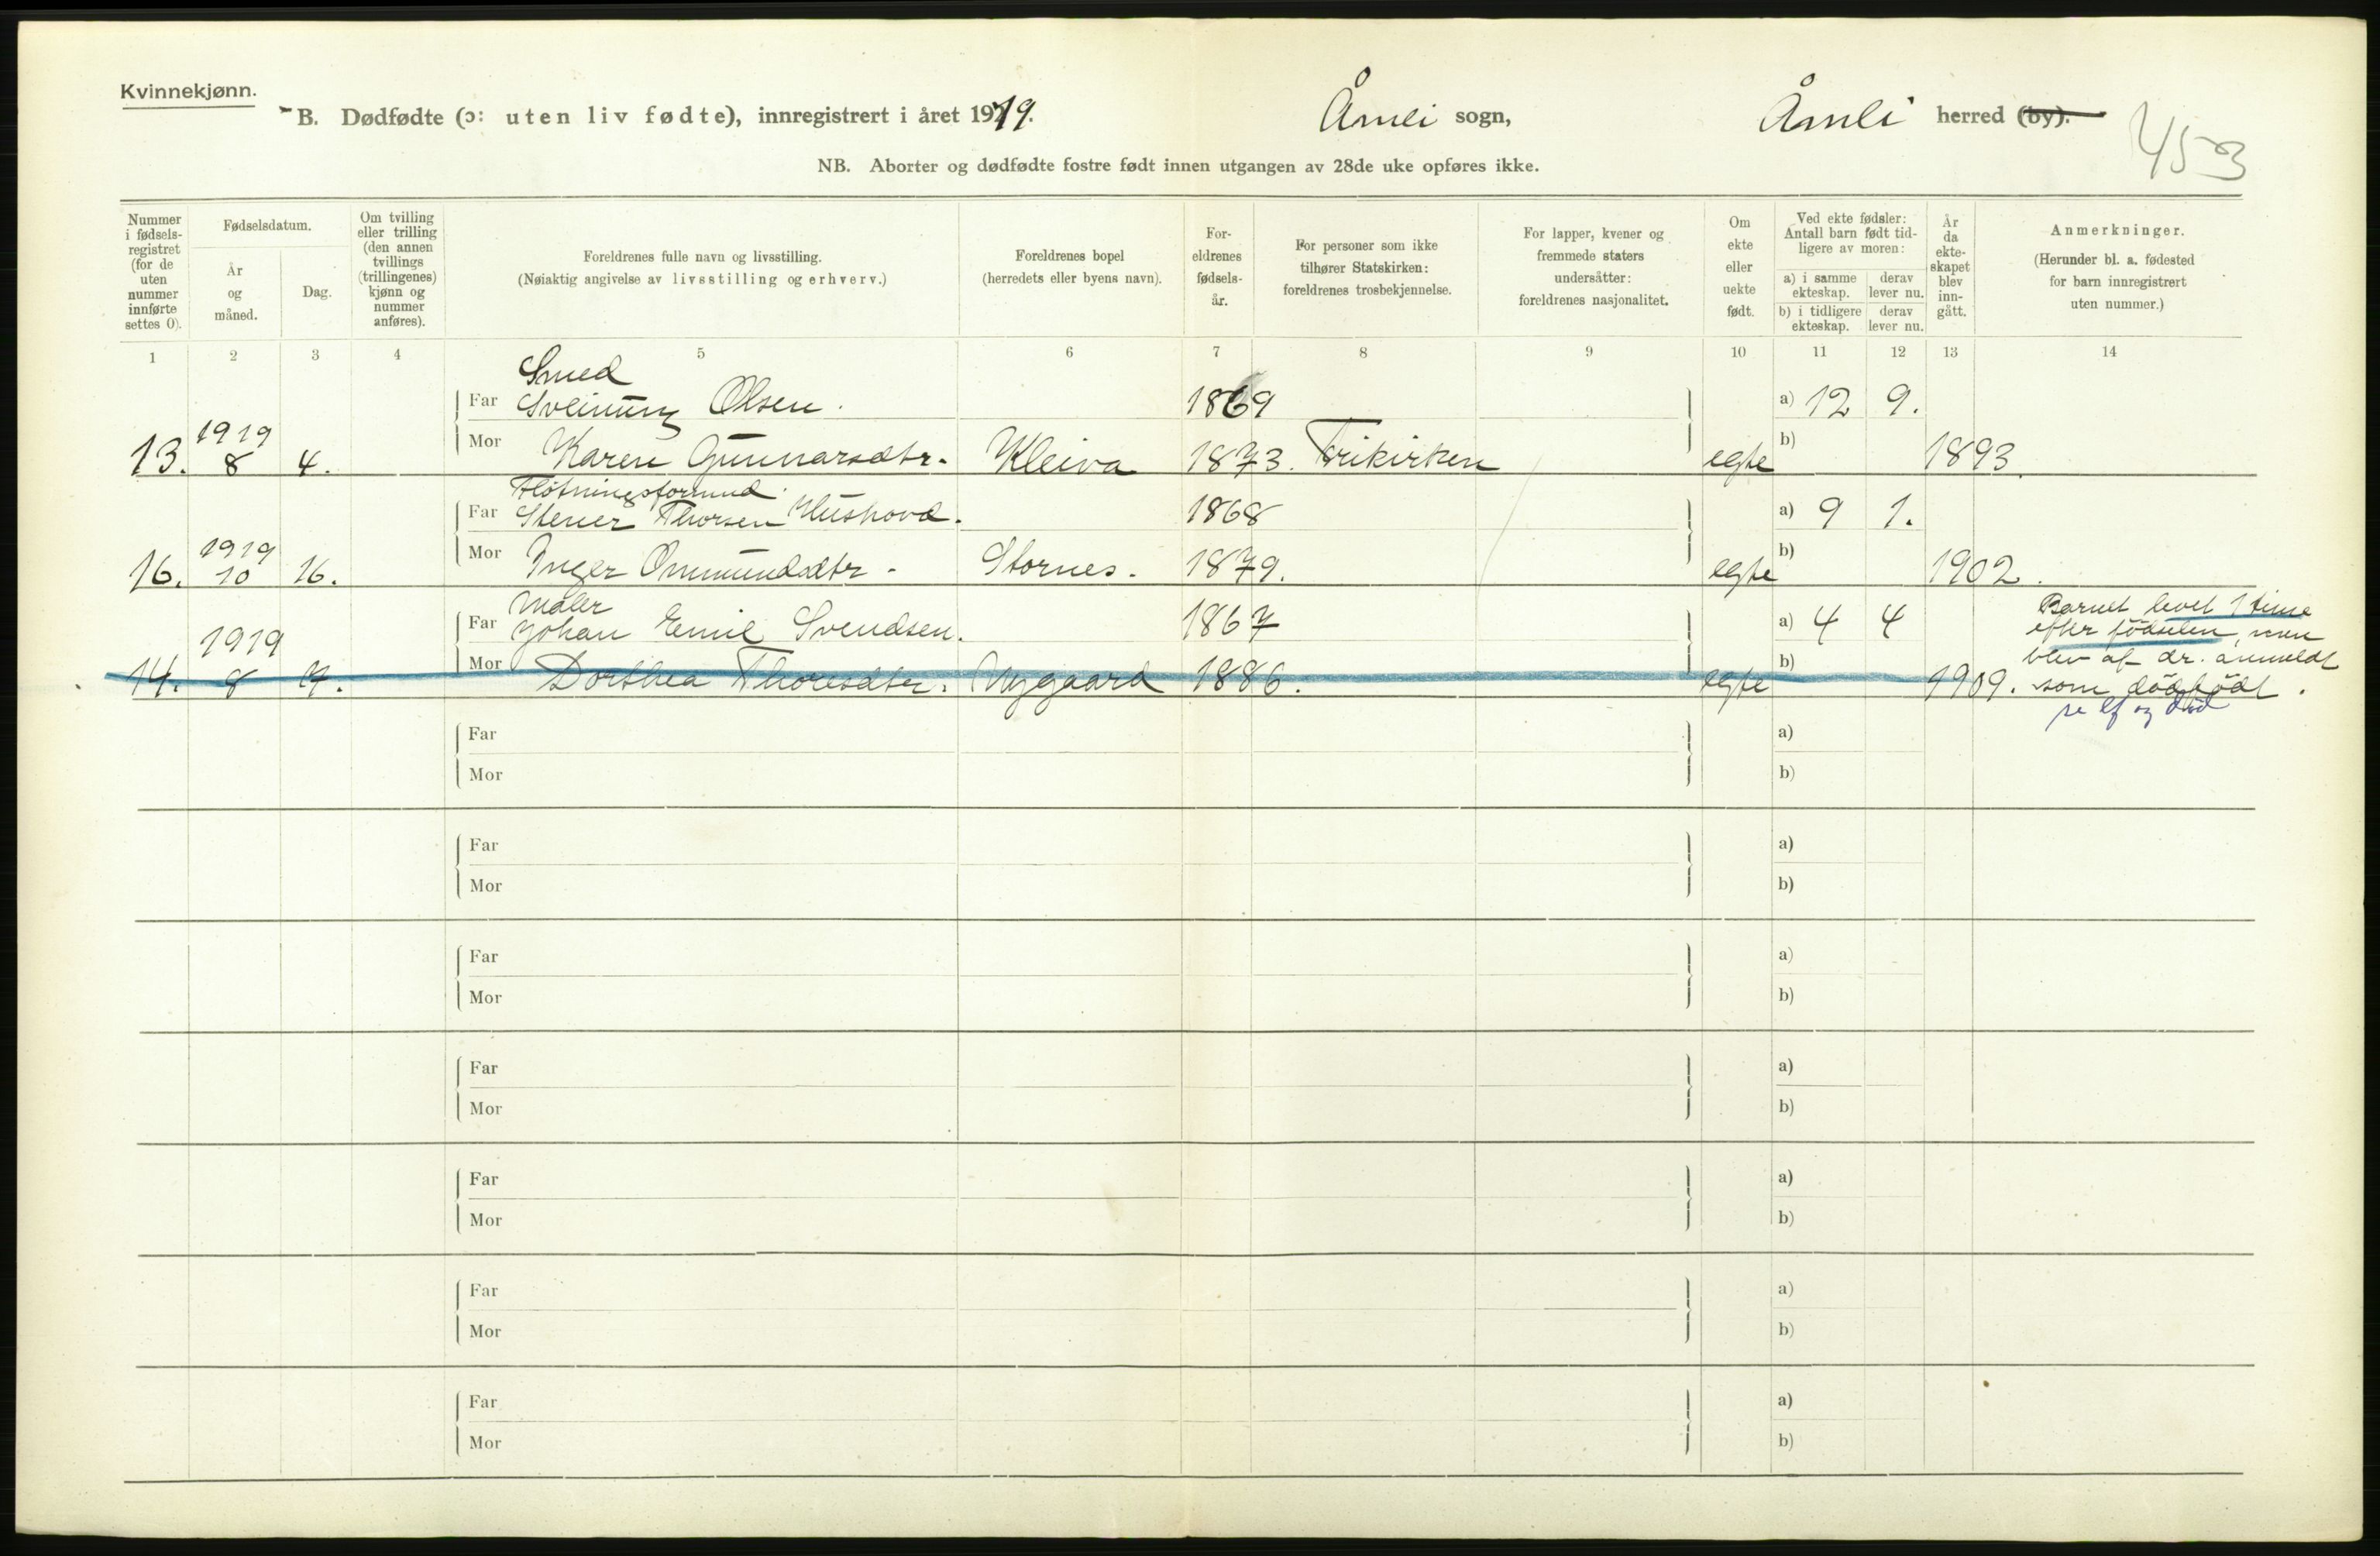 Kvinnekjønn.
B. Dødfødte (ɔ: uten liv fødte), innregistrert i året 1919.
Åmli sogn,
Åmli herred (by).
453
NB. Aborter og dødfødte fostre født innen utgangen av 28de uke opføres ikke.
Nummer i fødsels-registret (for de uten nummer innførte settes 0).
Fødselsdatum.
År og måned.
Dag.
Om tvilling eller trilling (den annen tvillings (trillingenes) kjønn og nummer anføres).
Foreldrenes fulle navn og livsstilling.
(Nøiaktig angivelse av livsstilling og erhverv.)
Foreldrenes bopel
(herredets eller byens navn).
For-eldrenes fødsels-år.
For personer som ikke tilhører Statskirken: foreldrenes trosbekjennelse.
For lapper, kvener og fremmede staters undersåtter: foreldrenes nasjonalitet.
Om ekte eller uekte født.
Ved ekte fødsler: Antall barn født tid-ligere av moren:
a) i samme ekteskap.
derav lever nu.
b) i tidligere ekteskap.
derav lever nu.
År da ekte-skapet blev inn-gått.
Anmerkninger.
(Herunder bl. a. fødested for barn innregistrert uten nummer.)
1 2 3 4 5 6 7 8 9 10 11 12 13 14
Smed
Far Sveinung Olsen. 1869 a) 12 9.
13. 1919 8 4. Mor Karen Gunnarsdtr. Kleiva 1873. Frikirken egte b) 1893.
Fløtningsformand.
Far Stener Thorsen Hushovd. 1868 a) 9 1.
16. 1919 10 16. Mor Inger Ommundsdtr. Stornes. 1879. egte b) 1902.
Maler
Far Johan Emil Svendsen. 1867 a) 4 4
14. 1919 8 7. Mor Dorthea Thoresdter. Nygaard 1886. egte b) 1909.
Barnet levet 1 time
efter fødselen, men
blev af dr. anmeldt
som dødfødt.
se lf og død
Far a)
Mor b)
Far a)
Mor b)
Far a)
Mor b)
Far a)
Mor b)
Far a)
Mor b)
Far a)
Mor b)
Far a)
Mor b)